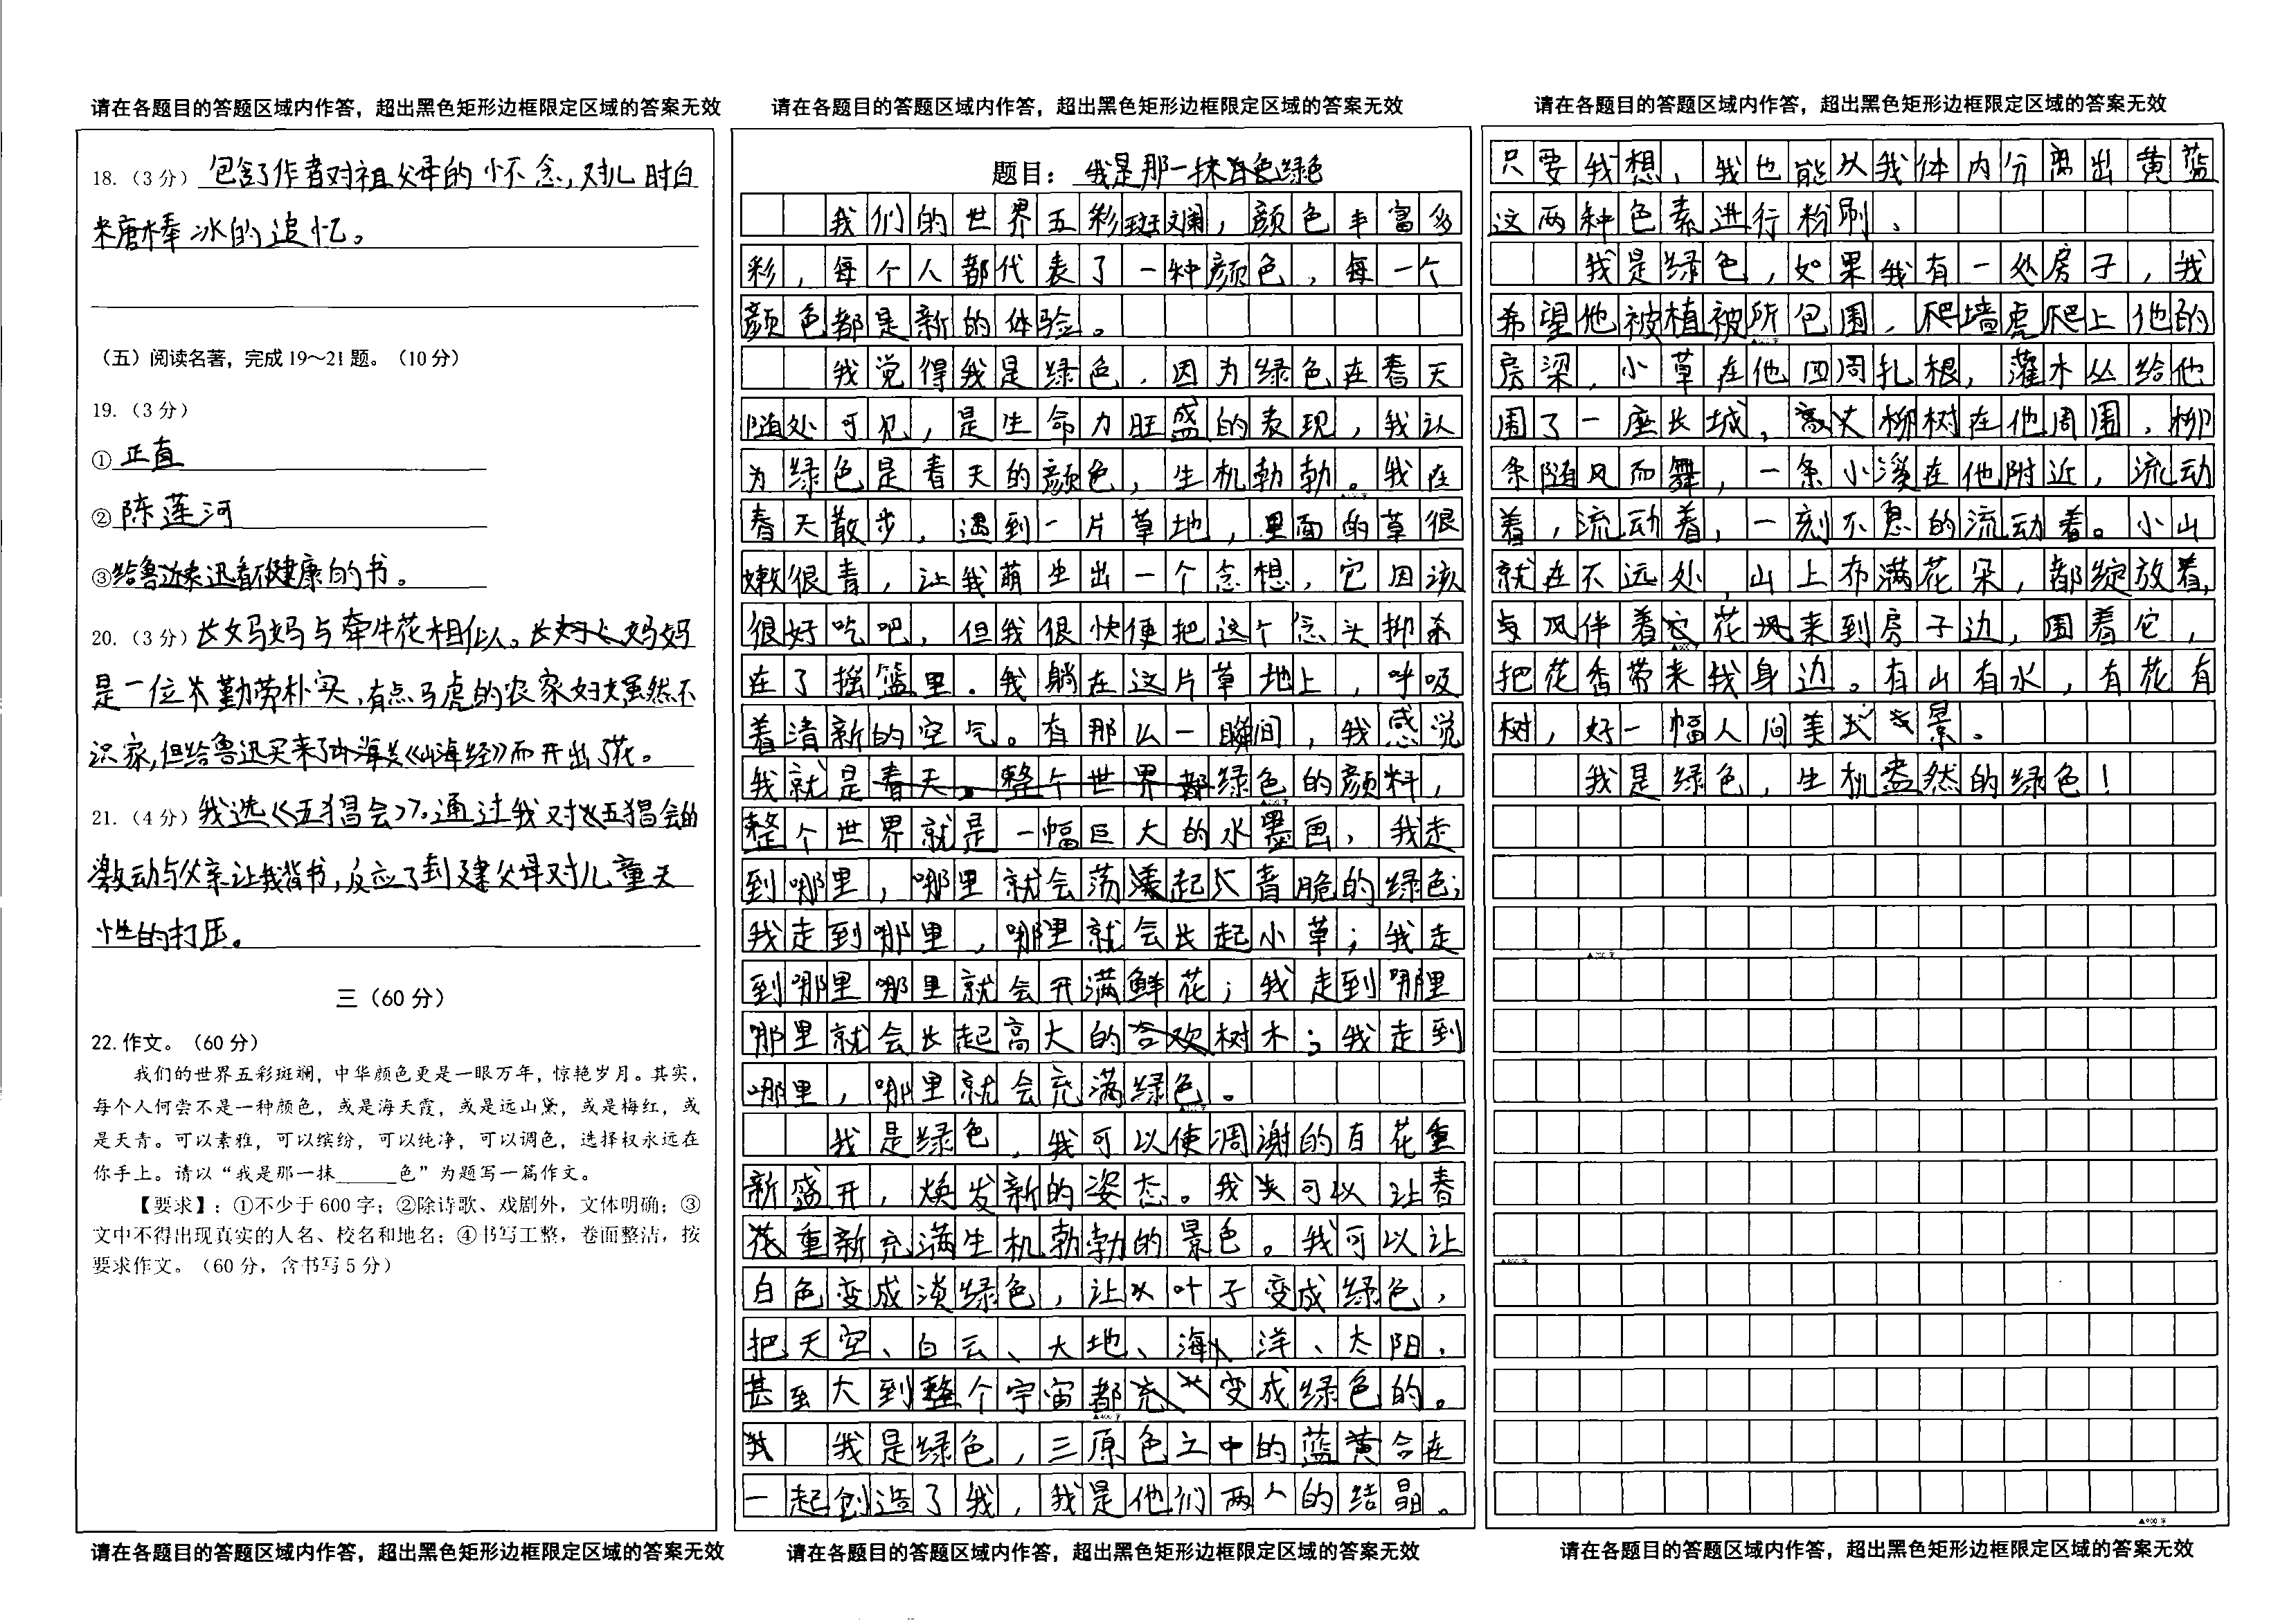 请在各题目的答题区域内作答，超出黑色矩形边框限定区域的答案无效
18.（3分）包含了作者对祖父母的怀念,对儿时白
米唐棒冰的追忆。
（五）阅读名著，完成19～21题。（10分）
19.（3分）
①正直
②陈莲河
③给鲁迅看不健康的书。
20.（3分）长妈妈与牵牛花相似。妈妈
是一位勤劳朴实,有点马虎的农家妇女虽然不
识家,但给鲁迅买来了《山海经》而开出了花。
21.（4分）我选《五猖会》。通过我对《五猖会的
激动与父亲让我背书,反应了封建父母对儿童天
性的打压。
三（60分）
22.作文。（60分）
我们的世界五彩斑斓，中华颜色更是一眼万年，惊艳岁月。其实，
每个人何尝不是一种颜色，或是海天霞，或是远山黛，或是梅红，或
是天青。可以素雅，可以缤纷，可以纯净，可以调色，选择权永远在
你手上。请以“我是那一抹______色”为题写一篇作文。
【要求】：①不少于600字；②除诗歌、戏剧外，文体明确；③
文中不得出现真实的人名、校名和地名；④书写工整，卷面整洁，按
要求作文。（60分，含书写5分）
请在各题目的答题区域内作答，超出黑色矩形边框限定区域的答案无效
请在各题目的答题区域内作答，超出黑色矩形边框限定区域的答案无效
题目：我是那一抹绿色
我们的世界五彩斑斓，颜色丰富多
彩，每个人都代表了一种颜色，每一个
颜色都是新的体验。
我觉得我是绿色，因为绿色在春天
随处可见，是生命力旺盛的表现，我认
为绿色是春天的颜色，生机勃勃。我在
春天散步，遇到一片草地，里面的草很
嫩很青，让我萌生出一个念想，它因该
很好吃吧，但我很快便把这个念头抑杀
在了摇篮里。我躺在这片草地上，呼吸
着清新的空气。有那么一瞬间，我感觉
我就是绿色的颜料，
整个世界就是一幅巨大的水墨画，我走
到哪里，哪里就会荡起青脆的绿色；
我走到哪里，哪里就会长起小草；我走
到哪里哪里就会开满鲜花；我走到哪里
那里就会长起高大的树木；我走到
哪里，哪里就会充满绿色。
我是绿色，我可以使凋谢的百花重
新盛开，焕发新的姿态。我可以让春
花重新充满生机勃勃的景色。我可以让
白色变成淡绿色，让叶子变成绿色，
把天空、白云、大地、海洋、太阳，
甚至大到整个宇宙都变成绿色的。
我是绿色，三原色之中的蓝黄合在
一起创造了我，我是他们两人的结晶。
▲400字
请在各题目的答题区域内作答，超出黑色矩形边框限定区域的答案无效
请在各题目的答题区域内作答，超出黑色矩形边框限定区域的答案无效
只要我想，我也能从我体内分离出黄蓝
这两种色素进行粉刷、
我是绿色，如果我有一处房子，我
希望他被植被所包围，爬墙虎爬上他的
房梁，小草在他四周扎根，灌木丛给他
围了一座长城，高大柳树在他周围，柳
条随风而舞，一条小溪在他附近，流动
着，流动着，一刻不息的流动着。小山
就在不远处，山上布满花朵，都绽放着,
风伴着花来到房子边，围着它，
把花香带来我身边。有山有水，有花有
树，好一幅人间美景。
我是绿色，生机盎然的绿色！
▲900字
请在各题目的答题区域内作答，超出黑色矩形边框限定区域的答案无效